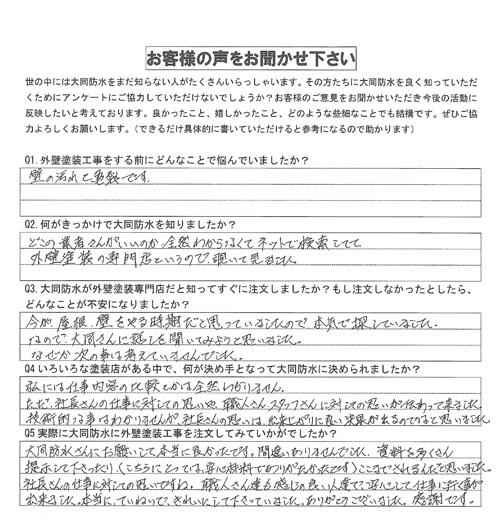 お客様の声をお聞かせ下さい
世の中には大同防水をまだ知らない人がたくさんいらっしゃいます。その方たちに大同防水を良く知っていただ
くためにアンケートにご協力していただけないでしょうか？お客様のご意見をお聞かせいただき今後の活動に
反映したいと考えております。良かったこと、嬉しかったこと、どのような些細なことでも結構です。ぜひご協
力よろしくお願いします。（できるだけ具体的に書いていただけると参考になるので助かります）
Q1. 外壁塗装工事をする前にどんなことで悩んでいましたか？
壁の汚れと亀裂です。
Q2. 何がきっかけで大同防水を知りましたか？
どこの業者さんがいいのか全然わからなくてネットで検索してて
外壁塗装の専門店というので、覗いて見ました。
Q3. 大同防水が外壁塗装専門店だと知ってすぐに注文しましたか？もし注文しなかったとしたら、
どんなことが不安になりましたか？
今が、屋根、壁をやる時期だと思っていましたので、本気で探していました。
なので、大同さんに話しを聞いてみようと思いました。
なぜか次の事は考えていませんでした。
Q4. いろいろな塗装店がある中で、何が決め手となって大同防水に決められましたか？
私には仕事内容の比較とかは全然わかりません。
ただ、社長さんの仕事に対しての思いや、職人さん、スタッフさんに対しての思いが伝わって来ました。
技術的な事はわかりませんが、社長さんの思いは、出来上がりに良い効果が出るのでなと思いました。
Q5 実際に大同防水に外壁塗装工事を注文してみていかがでしたか？
大同防水さんにお願いして本当に良かったです。間違いありませんでした。資料を多くさん
提示して下さったり（こちらにとっては、安心材料でありがたかったです）ここまでされるんだと思いました。
社長さんの仕事に対しての思いですね。職人さん達も感じの良い人達で、安心して仕事に行く事が
出来ました。本当に、ていねいで、きれいにして下さっていました。ありがとうございました。感謝です。